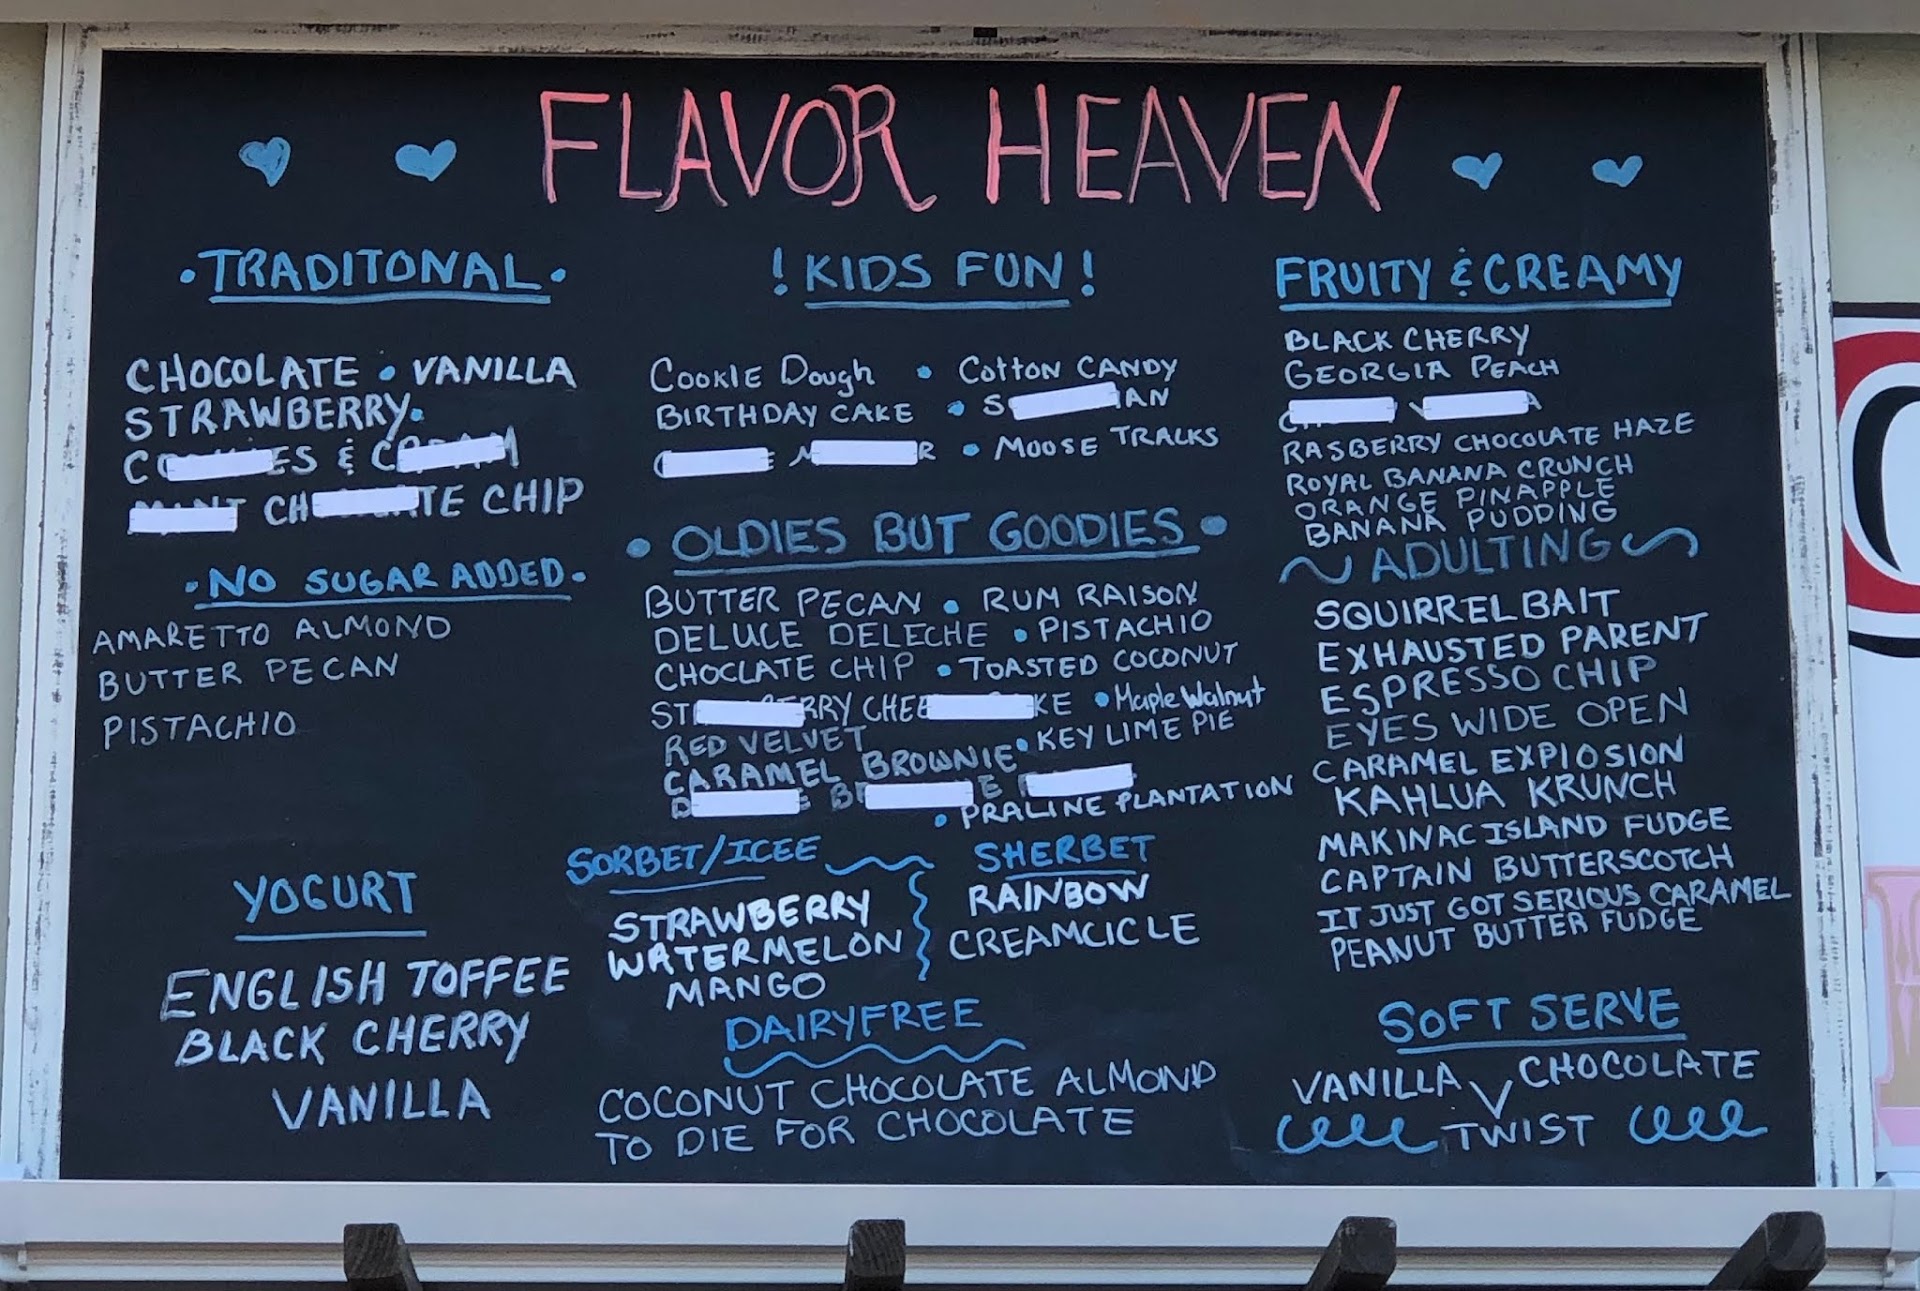 FLAVOR HEAVEN
TRADITONAL
CHOCOLATE • VANILLA
STRAWBERRY•
&
CHIP
• NO SUGAR ADDED •
AMARETTO ALMOND
BUTTER PECAN
PISTACHIO
YOGURT
ENGLISH TOFFEE
BLACK CHERRY
VANILLA
! KIDS FUN !
COOKIE DOUGH • COTTON CANDY
BIRTHDAY CAKE •
• MOOSE TRACKS
• OLDIES BUT GOODIES •
BUTTER PECAN • RUM RAISON
DELUCE DELECHE • PISTACHIO
CHOCLATE CHIP • TOASTED COCONUT
• Maple Walnut
RED VELVET
CARAMEL BROWNIE • KEY LIME PIE
• PRALINE PLANTATION
SORBET/ICEE
STRAWBERRY
WATERMELON
MANGO
SHERBET
RAINBOW
CREAMCICLE
DAIRYFREE
COCONUT CHOCOLATE ALMOND
TO DIE FOR CHOCOLATE
FRUITY & CREAMY
BLACK CHERRY
GEORGIA PEACH
RASBERRY CHOCOLATE HAZE
ROYAL BANANA CRUNCH
ORANGE PINAPPLE
BANANA PUDDING
~ ADULTING ~
SQUIRREL BAIT
EXHAUSTED PARENT
ESPRESSO CHIP
EYES WIDE OPEN
CARAMEL EXPLOSION
KAHLUA KRUNCH
MAKINAC ISLAND FUDGE
CAPTAIN BUTTERSCOTCH
IT JUST GOT SERIOUS CARAMEL
PEANUT BUTTER FUDGE
SOFT SERVE
VANILLA CHOCOLATE
TWIST